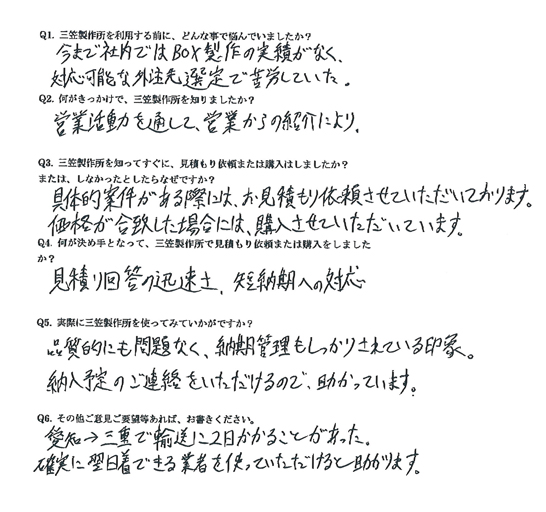 Q1. 三笠製作所を利用する前に、どんな事で悩んでいましたか?
今まで社内ではBOX製作の実績がなく、
対応可能な外注先選定で苦労していた。
Q2. 何がきっかけで、三笠製作所を知りましたか?
営業活動を通して、営業からの紹介により。
Q3. 三笠製作所を知ってすぐに、見積もり依頼または購入はしましたか?
または、しなかったとしたらなぜですか?
具体的案件がある際には、お見積もり依頼させていただいております。
価格が合致した場合には、購入させていただいています。
Q4. 何が決め手となって、三笠製作所で見積もり依頼または購入をしました
か?
見積り回答の迅速さ、短納期への対応
Q5. 実際に三笠製作所を使ってみていかがですか?
品質的にも問題なく、納期管理もしっかりされている印象。
納入予定のご連絡をいただけるので、助かっています。
Q6. その他ご意見ご要望等あれば、お書きください。
愛知→三重で輸送に2日かかることがあった。
確実に翌日着できる業者を使っていただけると助かります。